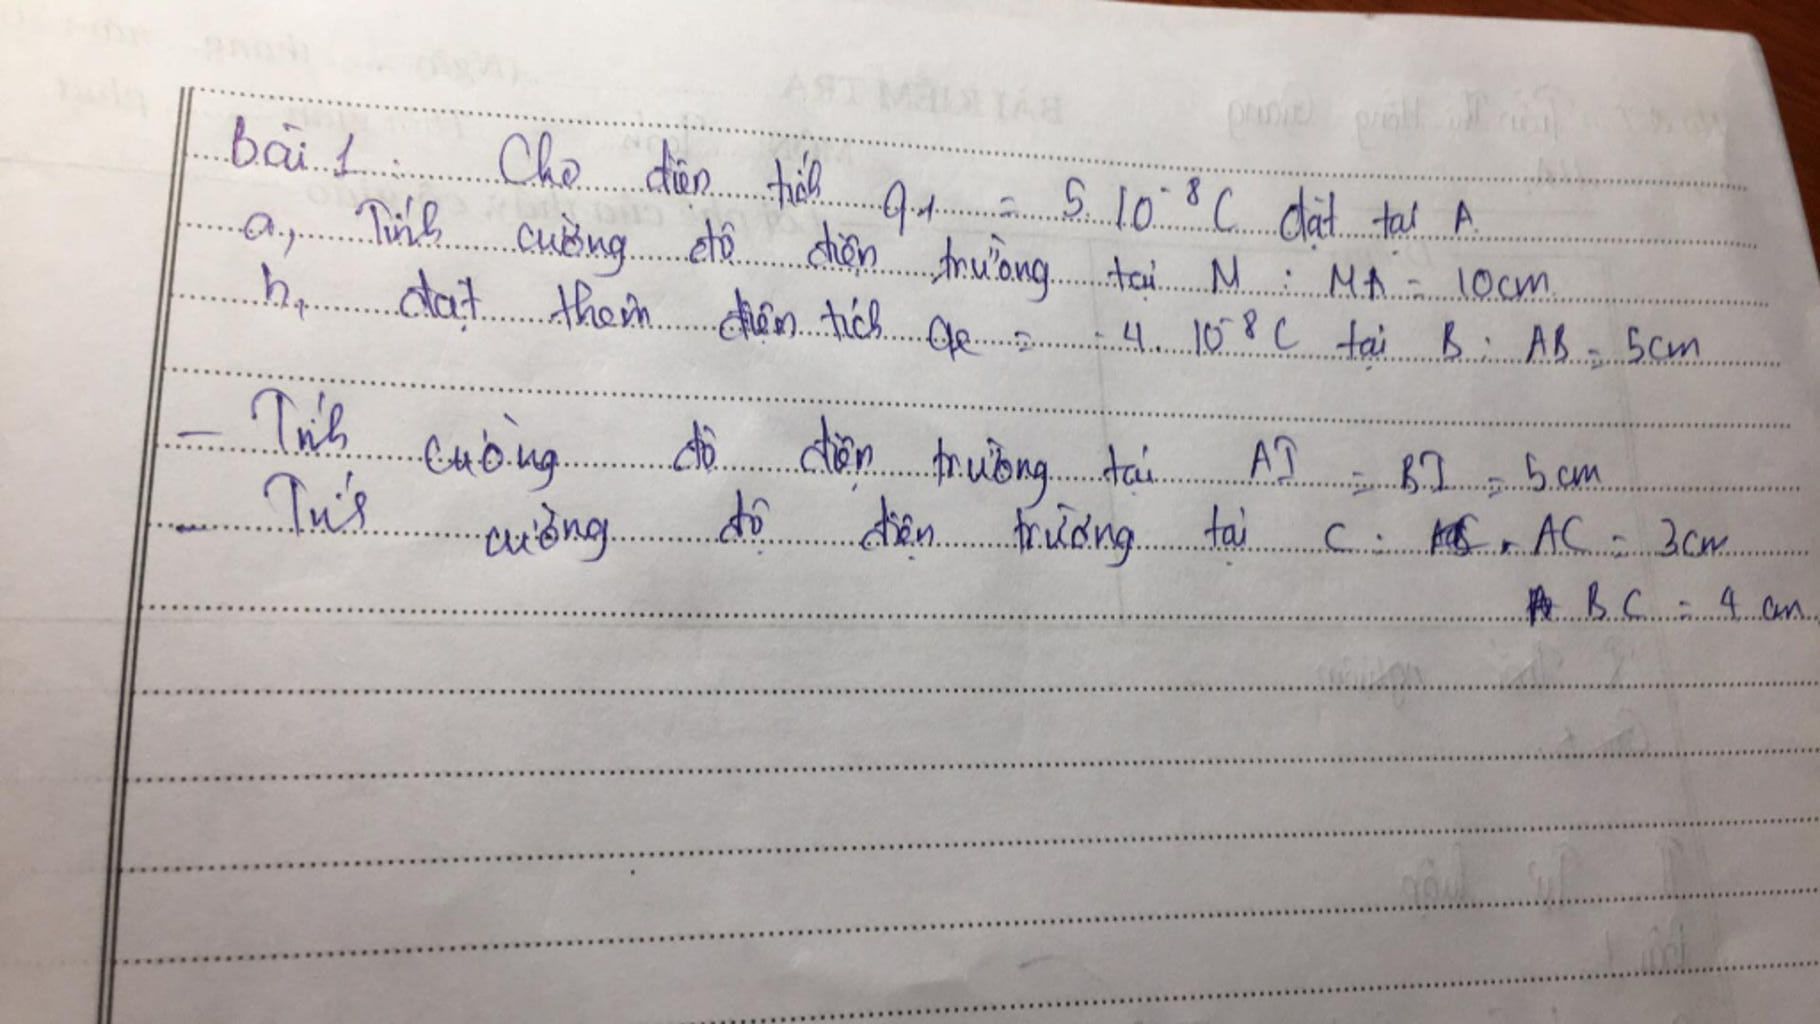 Bài 1 : Cho điện tích q1 = 5.10⁻⁸C đặt tại A
a, Tính cường độ điện trường tại M : MA = 10cm
b, đặt thêm điện tích q2 = -4.10⁻⁸C tại B : AB = 5cm
- Tính cường độ điện trường tại AI = BI = 5cm
- Tính cường độ điện trường tại C : AC = 3cm
BC = 4 cm